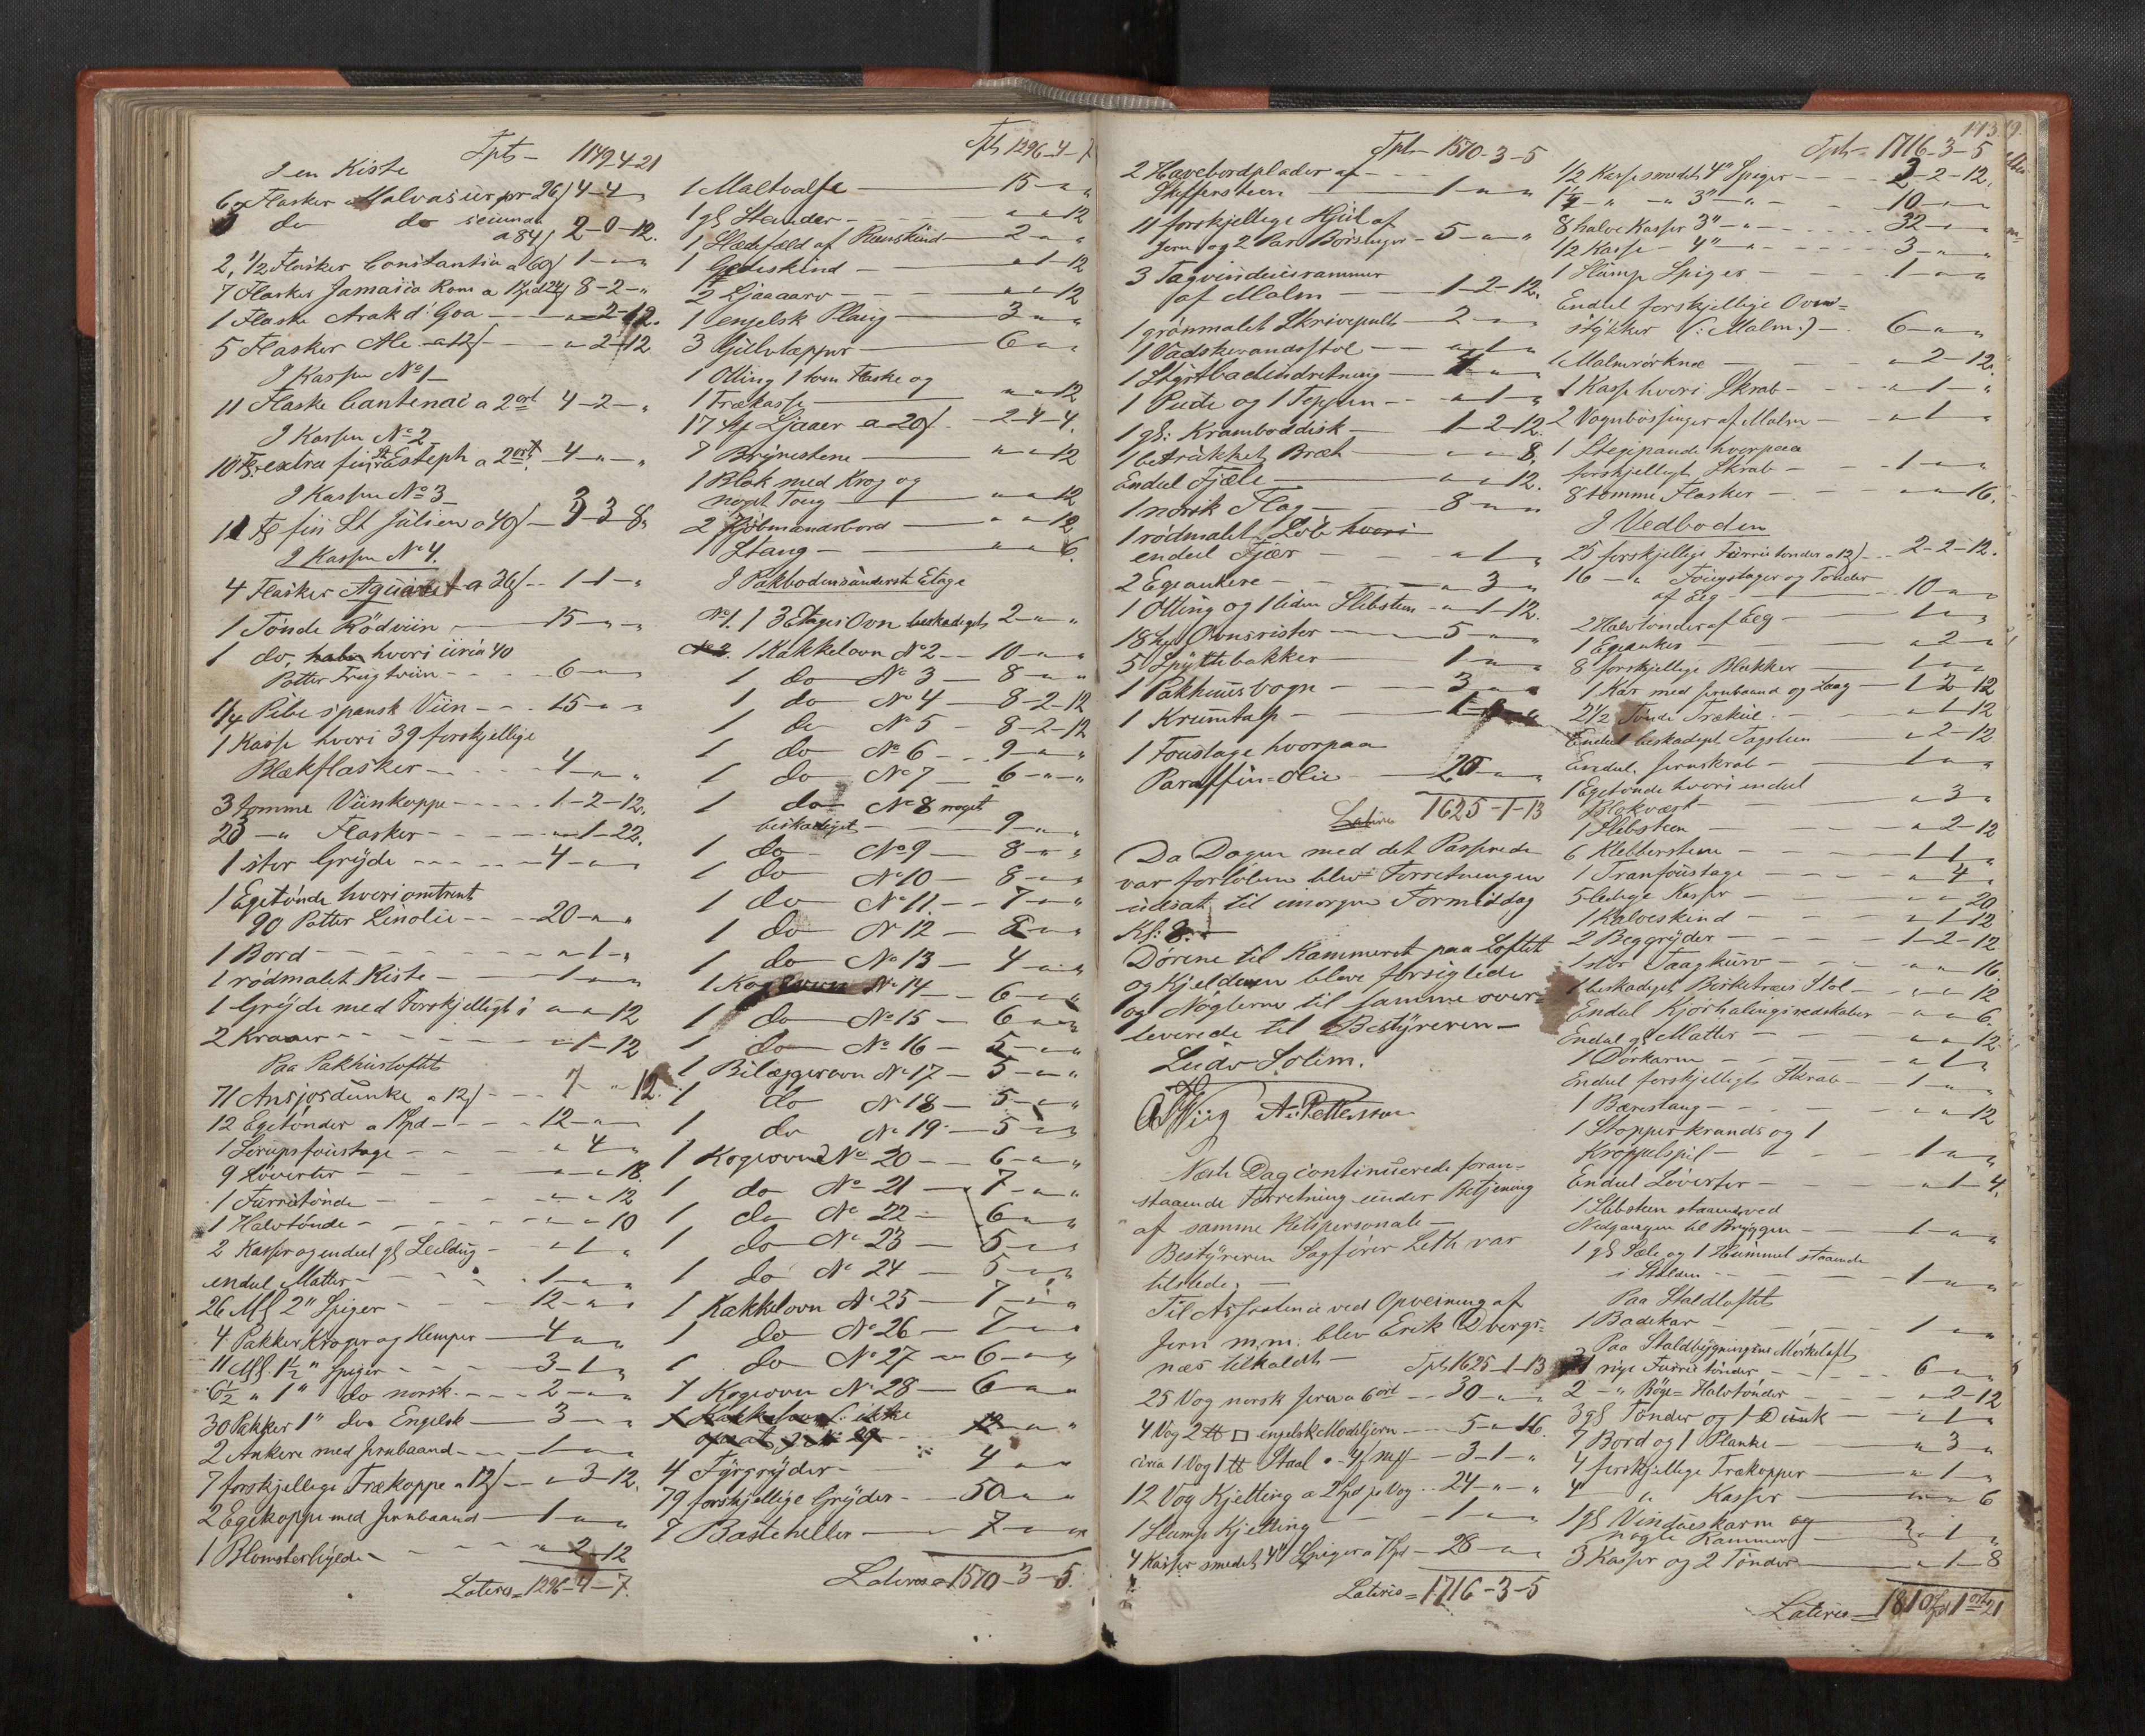 Tpt - 1149-4-21
I en Kiste
6 Flasker Malvasier pr 26 s 4-4-"
do do secunda
a 84 s 2-0-12.
2, 1/2 Flasker Constantia a 60 s 1-"-"
7 Flasker Jamaica Rom a 1 Spd 24 s 8-2-"
1 Flaske Arak d'Goa - "-2-12.
5 Flasker Ale a 12 s - "-2-12
I Kassen No 1
11 Flaske Cantenac a 2 ort 4-2-"
I Kassen No 2
10 Fl. extra fin St Esteph a 2 ort 4-"-"
I Kassen No 3
11 Fl fin St Julien a 40 s - 3-3-8
I Kassen No 4.
4 Flasker a 36 s - 1-1-"
1 Tønde Rødviin - 15-"-"
1 do, hvori circa 40
Potter Frugtviin - 6-"-"
1/4 Pibe spansk Viin - 15-"-"
1 Kasse hvori 39 forskjellige
Blækflasker - 4-"-"
3 tomme Viinkoppe - 1-2-12.
23 -"- Flasker - "-1-22.
1 stor Gryde - 4-"-"
1 Egetønde hvori omtrent
90 Potter Linolie - 20-"-"
1 Bord - "-1-"
1 rødmalet Kiste - 1-"-"
1 Gryde med Forskjelligt i "-"-12
2 Kraner - "-1-12
Paa Pakhusloftet
71 Ansjosdunke a 12 s - 7-"-12.
12 Egetønder a 1 Spd - 12-"-"
1 Sirupsfoustage - "-4-"
9 Løverter - "-"-18.
1 Furretønde - "-"-12
1 Halvtønde - "-"-10
2 Kasser og endeel gl Leilding - "-1-"
endeel Matter - 1-"-"
26 M 2" Spiger - 12-"-"
4 Pakker Kroger og Hemper - 4-"-"
11 M 1 1/2" Spiger - 3-1-"
6 1/2 " 1" do norsk - 2-"-"
30 Pakker 1" do Engelsk - 3-"-"
2 Ankere med Jernbaand - 1-"-"
7 forskjellige Trækoppe a 12 s - "-3-12.
2 Egekoppe med Jernbaand - 1-"-"
1 Blomsterhylde - "-2-12
Lateris = 1296-4-7.
Tpt 1296-4-7
1 Maltvalse - 15-"-"
1 gl Stander - "-"-12
1 Slædefæld af Reenskind - 2-"-"
1 Gedeskind - "-1-12
2 Ljaaaarv - "-"-12
1 engelsk Ploug - 3-"-"
3 Gulvtæpper - 6-"-"
1 Otting 1 tom Flaske og
1 Trækasse - "-"-12
17 St Ljaaer a 20 s - 2-4-4.
7 Brynestene - "-"-12
1 Blok med Krog og
noget Toug - "-"-12
2 Kjøbmandsbord - "-"-12
1 Stang - "-"-6.
I Pakbodens underste Etage
No 1. 1 3 Etages Ovn beskadiget 2-"-"
No 2. 1 Kakkelovn No 2 - 10-"-"
1 do No 3 - 8-"-"
1 do No 4 - 8-2-12
1 do No 5 - 8-2-12
1 do No 6 - 9-"-"
1 do No 7 - 6-"-"
1 do No 8 noget
beskadiget - 9-"-"
1 do No 9 - 8-"-"
1 do No 10 - 8-"-"
1 do No 11 - 7-"-"
1 do No 12 - 8-"-"
1 do No 13 - 4-"-"
1 Kogeovn No 14 - 6-"-"
1 do No 15 - 6-"-"
1 do No 16 - 5-"-"
1 Bilæggerovn No 17 - 5-"-"
1 do No 18 - 5-"-"
1 do No 19 - 5-"-"
1 Kogeovn No 20 - 6-"-"
1 do No 21 - 7-"-"
1 do No 22 - 6-"-"
1 do No 23 - 5-"-"
1 do No 24 - 5-"-"
1 Kakkelovn No 25 - 7-"-"
1 do No 26 - 7-"-"
1 do No 27 - 6-"-"
1 Kogeovn No 28 - 6-"-"
1 Kakkelovn (: ikke
opsat :) No 29 - 12-"-"
4 Fyrgryder - 4-"-"
79 forskjellige Gryder - 50-"-"
7 Basteheller - 7-"-"
Lateris = 1570-3-5.
Tpt - 1570-3-5
2 Havebordplader af
Skiffersteen - 1-"-"
11 forskjellige Hjul af
Jern og 2 Par Børsinger - 5-"-"
3 Tagvinduesrammer
af Malm - 1-2-12.
1 grønmalet Skrivepult - 2-"-"
1 Vadskevandsstol - "-1-"
1 Styrtbadindretning - "-"
1 Pude og 1 Teppen - "-1-"
1 gl: Kramboddisk - 1-2-12.
1 betrukket Bræt - "-"-8.
Endeel Fjæle - "-"-12.
1 norsk Flag - 8-"-"
1 rødmalet Løb hvori
endeel Fjær - "-1-"
2 Egeankere - "-3-"
1 Otting og 1 liden Slibsteen - "-1-12.
18 hele Ovnsrister - 5-"-"
5 Spyttebakker - 1-"-"
1 Pakhuusvogn - 3-"-"
1 Krumtap -
1 Foustage hvorpaa
Paraffin-Olie - 20-"-"
Lateris 1625-1-13
Da Dagen med det Passerede
var forløben blev Forretningen
udsat til imorgen Formiddag
Kl: 8.
Dørene til Kammeret paa Loftet
og Kjelderen bleve forsiglede
og Nøglerne til samme over=
leverede til Bestyreren -
Ludv Solem.
A Pettersson
Næste Dag continuerede foran=
staaende Forretning under Betjening
af samme Retspersonale -
Bestyreren Sagfører Leth var
tilstede. -
Til Assistence ved Opveining af
Jern m.m. blev Erik Dvergs=
næs tilkaldt - Tpt 1625-1-13
25 Vog norsk Jern a 6 ort - 30-"-"
4 Vog 2 ℔ □ engelsk Modeljern - 5-"-16.
circa 1 Vog 1 ℔ Staal - 3-1-"
12 Vog Kjetting a 2 Spd pr Vog - 24-"-"
1 Stump Kjetting - 1-"-"
4 Kasser smedet 4" Spiger a 7 Spd - 28-"-"
Lateris = 1716-3-5
113
Tpt - 1716-3-5
1/2 Kasse smedet 4" Spiger - 2-2-12.
1 1/2 -"- -"- 3" -"- - 10-"-"
8 halve Kasser 3" -"- - 32-"-"
1/2 Kasse - 4" -"- - 3-"-"
1 Stump Spiger - 1-"-"
Endeel forskjellige Ovns=
stykker (: Malm :) - 6-"-"
1 Malmrørknæ - "-2-12.
1 Kasse hvori Skrab - "-1-"
2 Vognbøssinger af Malm - "-1-"
1 Stegepande hvorpaa
forskjelligt Skrab - 1-"-"
8 tomme Flasker - "-"-16.
I Vedboden
25 forskjellige Furretønder a 12 s - 2-2-12.
16 -"- Foustager og Tønder
af Eeg - 10-"-"
2 Halvtønder af Eeg - 1-"-"
1 Egeanker - "-2-"
8 forskjellige Blokker - 1-"-"
1 Kar med Jernbaand og Laag - 1-2-12
2 1/2 Tønde Trækul - "-1-12
Endeel beskadiget Tagsteen - "-2-12
Endeel Jernskrab - 1-"-"
1 Egetønde hvori endeel
Blokværk - "-3-"
1 Slibsteen - "-2-12
6 Klebbersteene - 1-1-"
1 Tranfoustage - "-4-"
5 ledige Kasser - "-"-20
1 Kalveskind - "-1-12
2 Beggryder - 1-2-12
1 stor Taagkurv - "-"-16.
1 beskadiget Birketræes Stol - "-"-12
Endeel Kjørhalingsredskaber - "-"-6.
Endeel gl Matter - "-"-12
1 Dørkarm - "-1-"
Endeel forskjelligt Skrab - 1-"-"
1 Bærestang - "-"-12
1 Stopperkrands og 1
Kroppelspil - 1-"-"
Endeel Løverter - "-1-4.
1 Slibsteen staaende ved
Nedgangen til Bryggen - 1-"-"
1 gl Sæle og 1 Hummel staaende
i Stalden - 1-"-"
Paa Staldloftet
1 Badekar - 1-"-"
Paa Staldbygningens Mørkeloft
nye Furretønder - 6-"-"
2 -"- Bøge=Halvtønder - "-2-12
3 gl Tønder og 1 Dunk - "-1-"
7 Bord og 1 Planke - "-3-"
4 forskjellige Trækopper - "-1-"
4 " Kasser - "-"-6
1 gl Vindueskarm og
nogle Rammer - "-1-"
3 Kasser og 2 Tønder - "-1-8
Lateris = 1810 Spd 1 ort 21